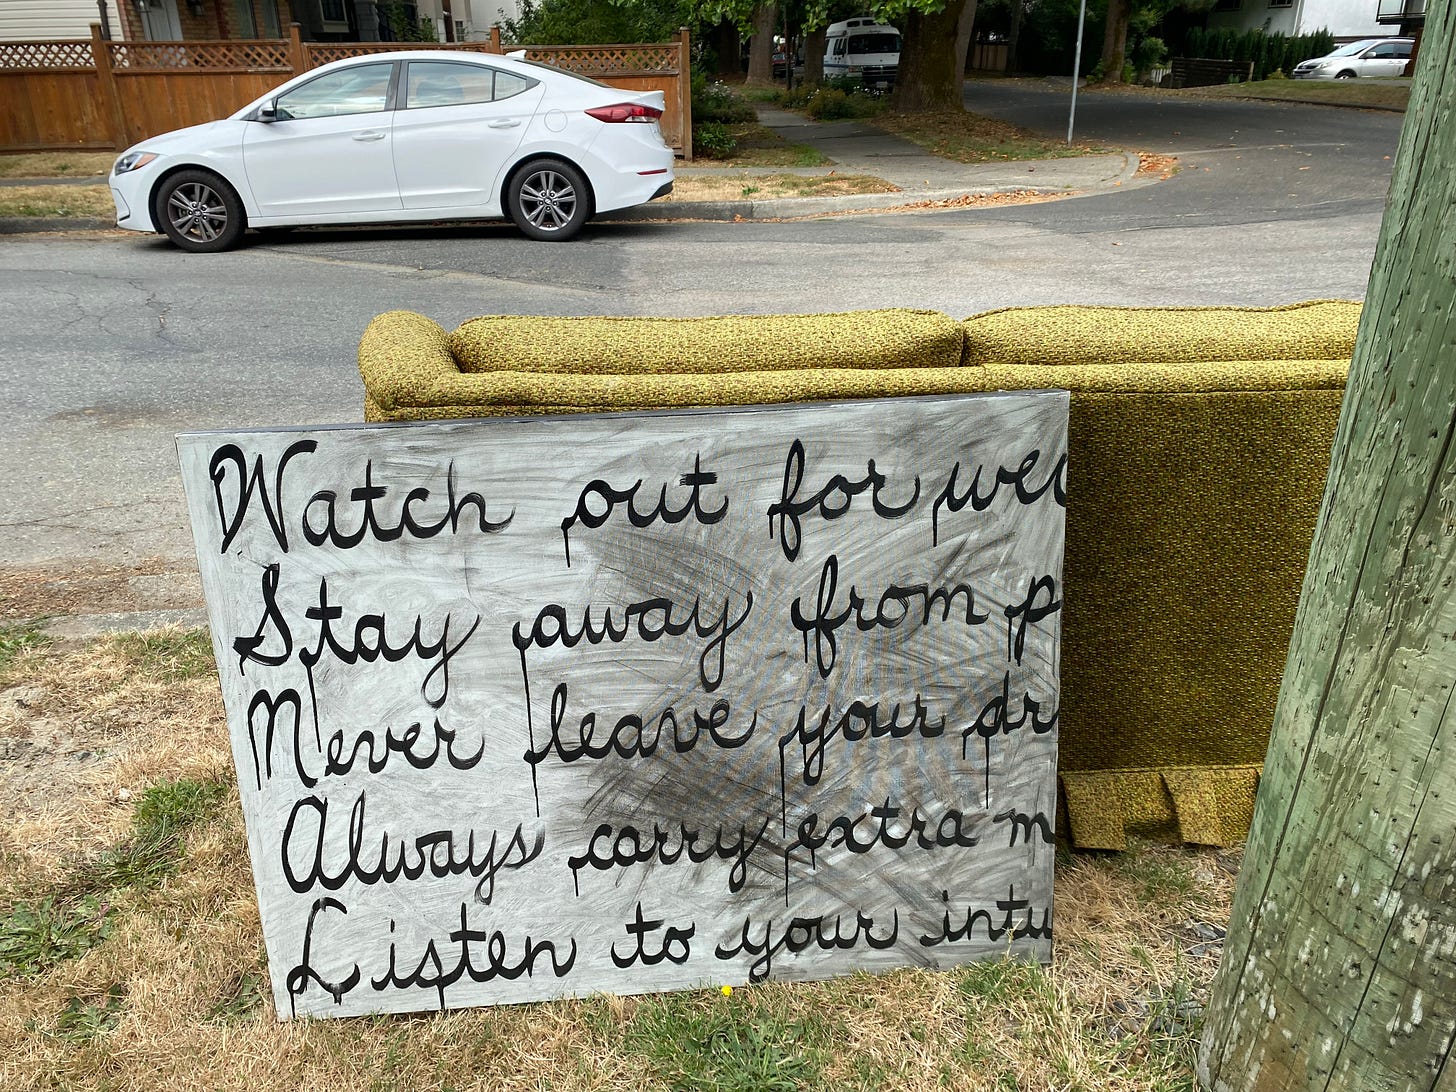 Watch out for wec
Stay away from p
Never leave your dr
Always carry extra m
Listen to your intu